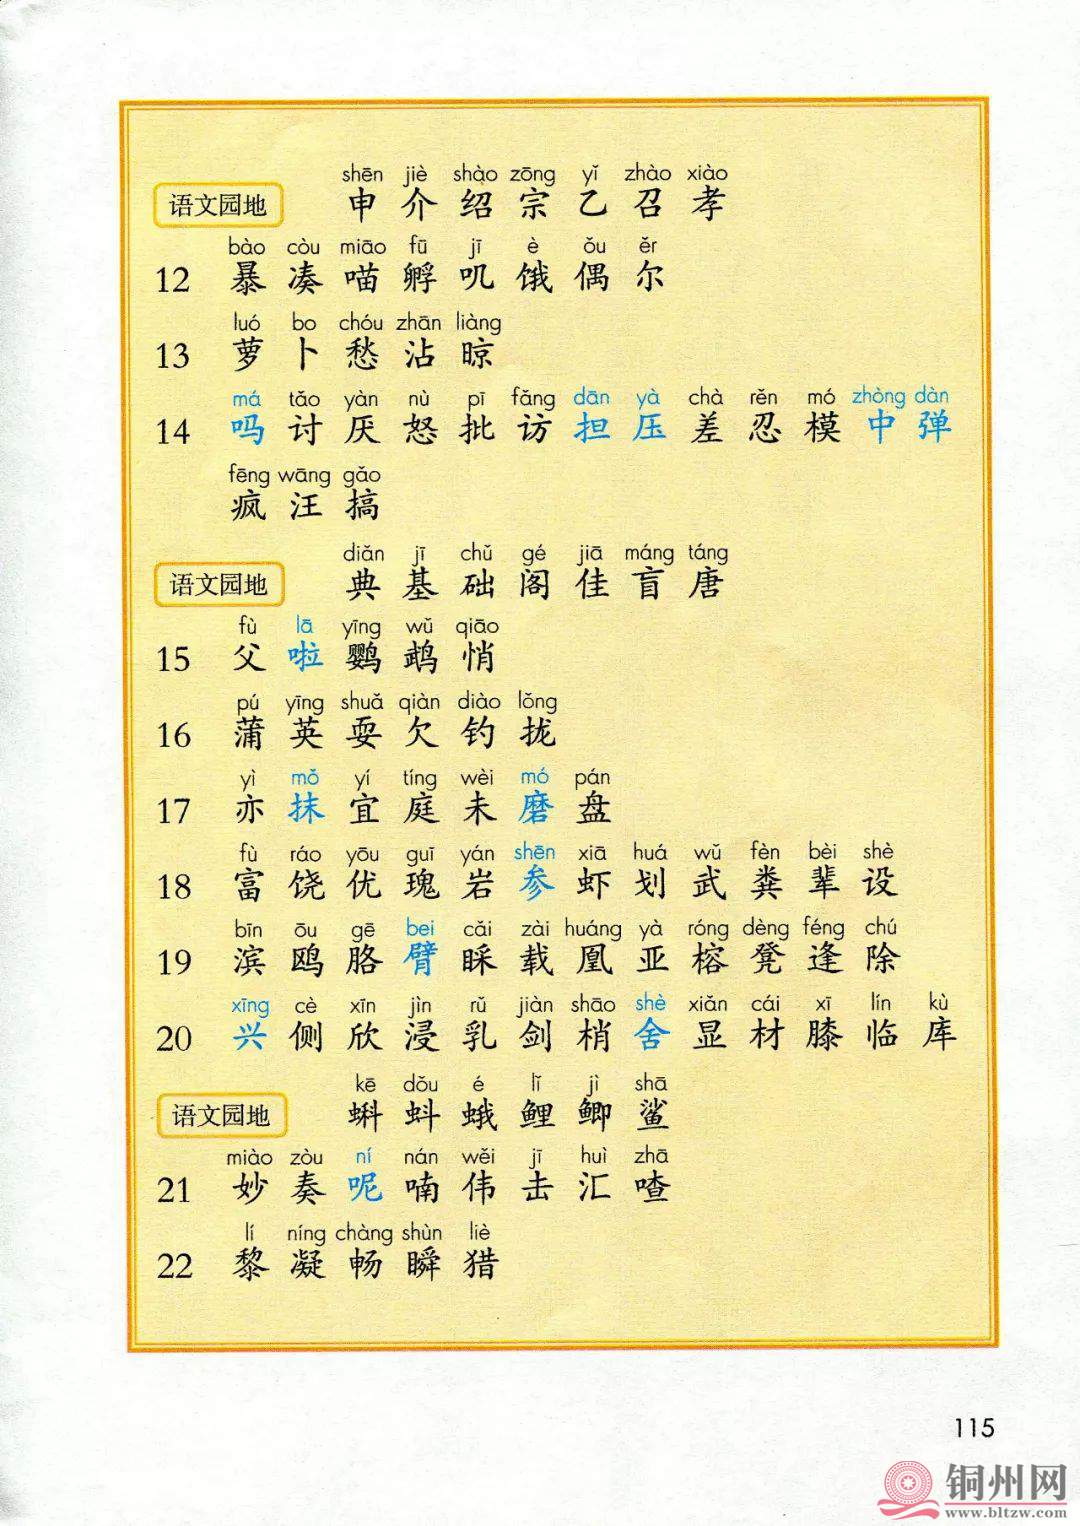 shēn jiè shào zōng yǐ zhào xiào
语文园地 申 介 绍 宗 乙 召 孝
bào còu miāo fū jī è ǒu ěr
12 暴 凑 喵 孵 叽 饿 偶 尔
luó bo chóu zhān liàng
13 萝 卜 愁 沾 晾
má tǎo yàn nù pī fǎng dān yà chà rěn mó zhòng dàn
14 吗 讨 厌 怒 批 访 担 压 差 忍 模 中 弹
fēng wāng gǎo
疯 汪 搞
diǎn jī chǔ gé jiā máng táng
语文园地 典 基 础 阁 佳 盲 唐
fù lā yīng wǔ qiāo
15 父 啦 鹦 鹉 悄
pú yīng shuǎ qiàn diào lǒng
16 蒲 英 耍 欠 钓 拢
yì mǒ yí tíng wèi mó pán
17 亦 抹 宜 庭 未 磨 盘
fù ráo yōu guī yán shēn xiā huá wǔ fèn bèi shè
18 富 饶 优 瑰 岩 参 虾 划 武 粪 辈 设
bīn ōu gē bei cǎi zài huáng yà róng dèng féng chú
19 滨 鸥 胳 臂 睬 载 凰 亚 榕 凳 逢 除
xīng cè xīn jìn rǔ jiàn shāo shè xiǎn cái xī lín kù
20 兴 侧 欣 浸 乳 剑 梢 舍 显 材 膝 临 库
kē dǒu é lǐ jì shā
语文园地 蝌 蚪 蛾 鲤 鲫 鲨
miào zòu ní nán wěi jī huì zhā
21 妙 奏 呢 喃 伟 击 汇 喳
lí níng chàng shùn liè
22 黎 凝 畅 瞬 猎
115
铜州网
www.bltzw.com